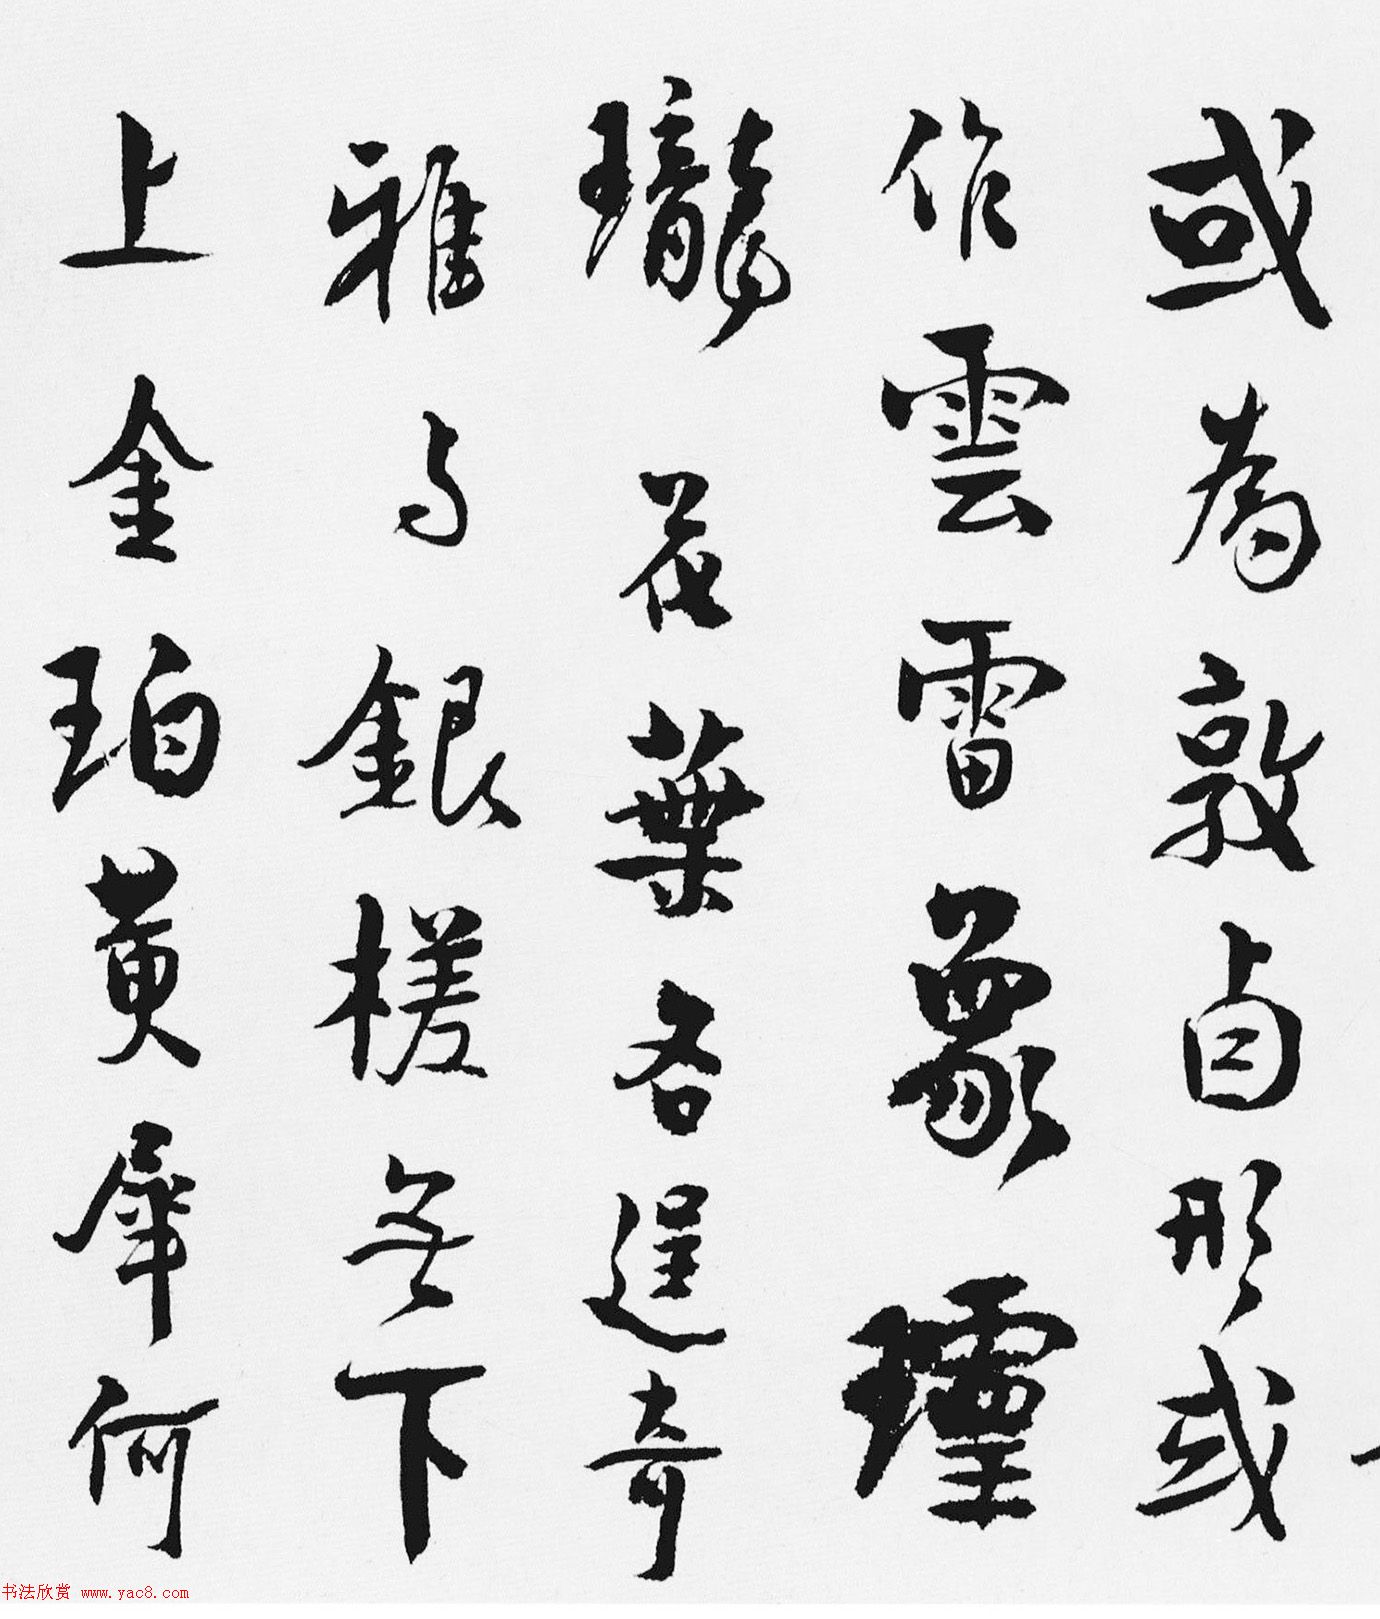 或為敦卣形或
作雲雷象瓏
瓏花葉各逞奇
雅与銀槎無下
上金珀黃犀何
书法欣赏 www.yac8.com